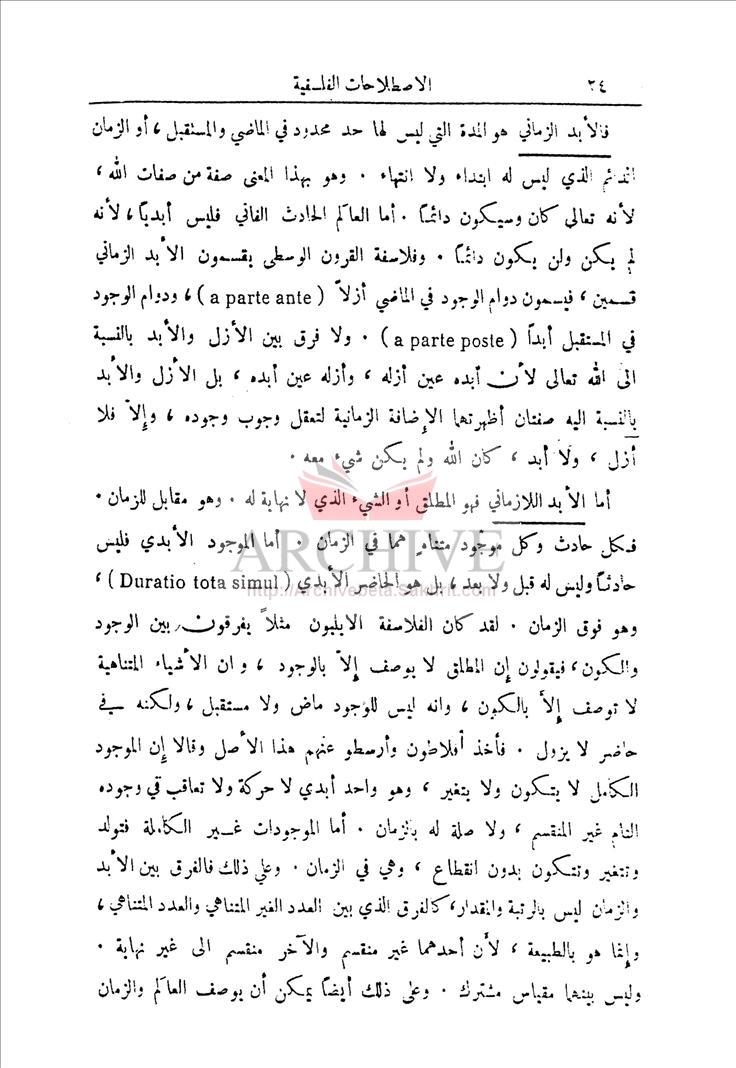 ٢٤ الاصطلاحات الفلسفية
فالأبد الزماني هو المدة التي ليس لها حد محدود في الماضي والمستقبل ، أو الزمان
الدائم الذي ليس له ابتداء ولا انتهاء . وهو بهذا المعنى صفة من صفات الله ،
لأنه تعالى كان وسيكون دائمًا . أما العالم الحادث الفاني فليس أبديًا ، لأنه
لم يكن ولن يكون دائمًا . وفلاسفة القرون الوسطى يقسمون الأبد الزماني
قسمين ، فيسمون دوام الوجود في الماضي أزلاً ( a parte ante ) ، ودوام الوجود
في المستقبل أبداً ( a parte poste ) . ولا فرق بين الأزل والأبد بالنسبة
الى الله تعالى لأن أبده عين أزله ، وأزله عين أبده ، بل الأزل والأبد
بالنسبة اليه صفتان أظهرتهما الإضافة الزمانية لتعقل وجوب وجوده ، وإلاّ فلا
أزل ، ولا أبد ، كان الله ولم يكن شيء معه .
أما الأبد اللازماني فهو المطلق أو الشيء الذي لا نهاية له . وهو مقابل للزمان .
ARCHIVE
فكل حادث وكل موجود متناهٍ هما في الزمان . أما الموجود الأبدي فليس
حادثًا وليس له قبل ولا بعد ، بل هو الحاضر الأبدي ( Duratio tota simul ) ،
http://Archivebeta.Sakhrit.com
وهو فوق الزمان . لقد كان الفلاسفة الايليون مثلاً يفرقون بين الوجود
والكون ، فيقولون إن المطلق لا يوصف إلاّ بالوجود ، وان الأشياء المتناهية
لا توصف إلاّ بالكون ، وانه ليس للوجود ماض ولا مستقبل ، ولكنه في
حاضر لا يزول . فأخذ أفلاطون وأرسطو عنهم هذا الأصل وقالا إن الموجود
الكامل لا يتكون ولا يتغير ، وهو واحد أبدي لا حركة ولا تعاقب في وجوده
التام غير المنقسم ، ولا صلة له بالزمان . أما الموجودات غير الكاملة فتولد
وتتغير وتتكون بدون انقطاع ، وهي في الزمان . وعلى ذلك فالفرق بين الأبد
والزمان ليس بالرتبة والمقدار، كالفرق الذي بين العدد الغير المتناهي والعدد المتناهي ،
وإنما هو بالطبيعة ، لأن أحدهما غير منقسم والآخر منقسم الى غير نهاية .
وليس بينهما مقياس مشترك . وعلى ذلك أيضًا يمكن أن يوصف العالم والزمان